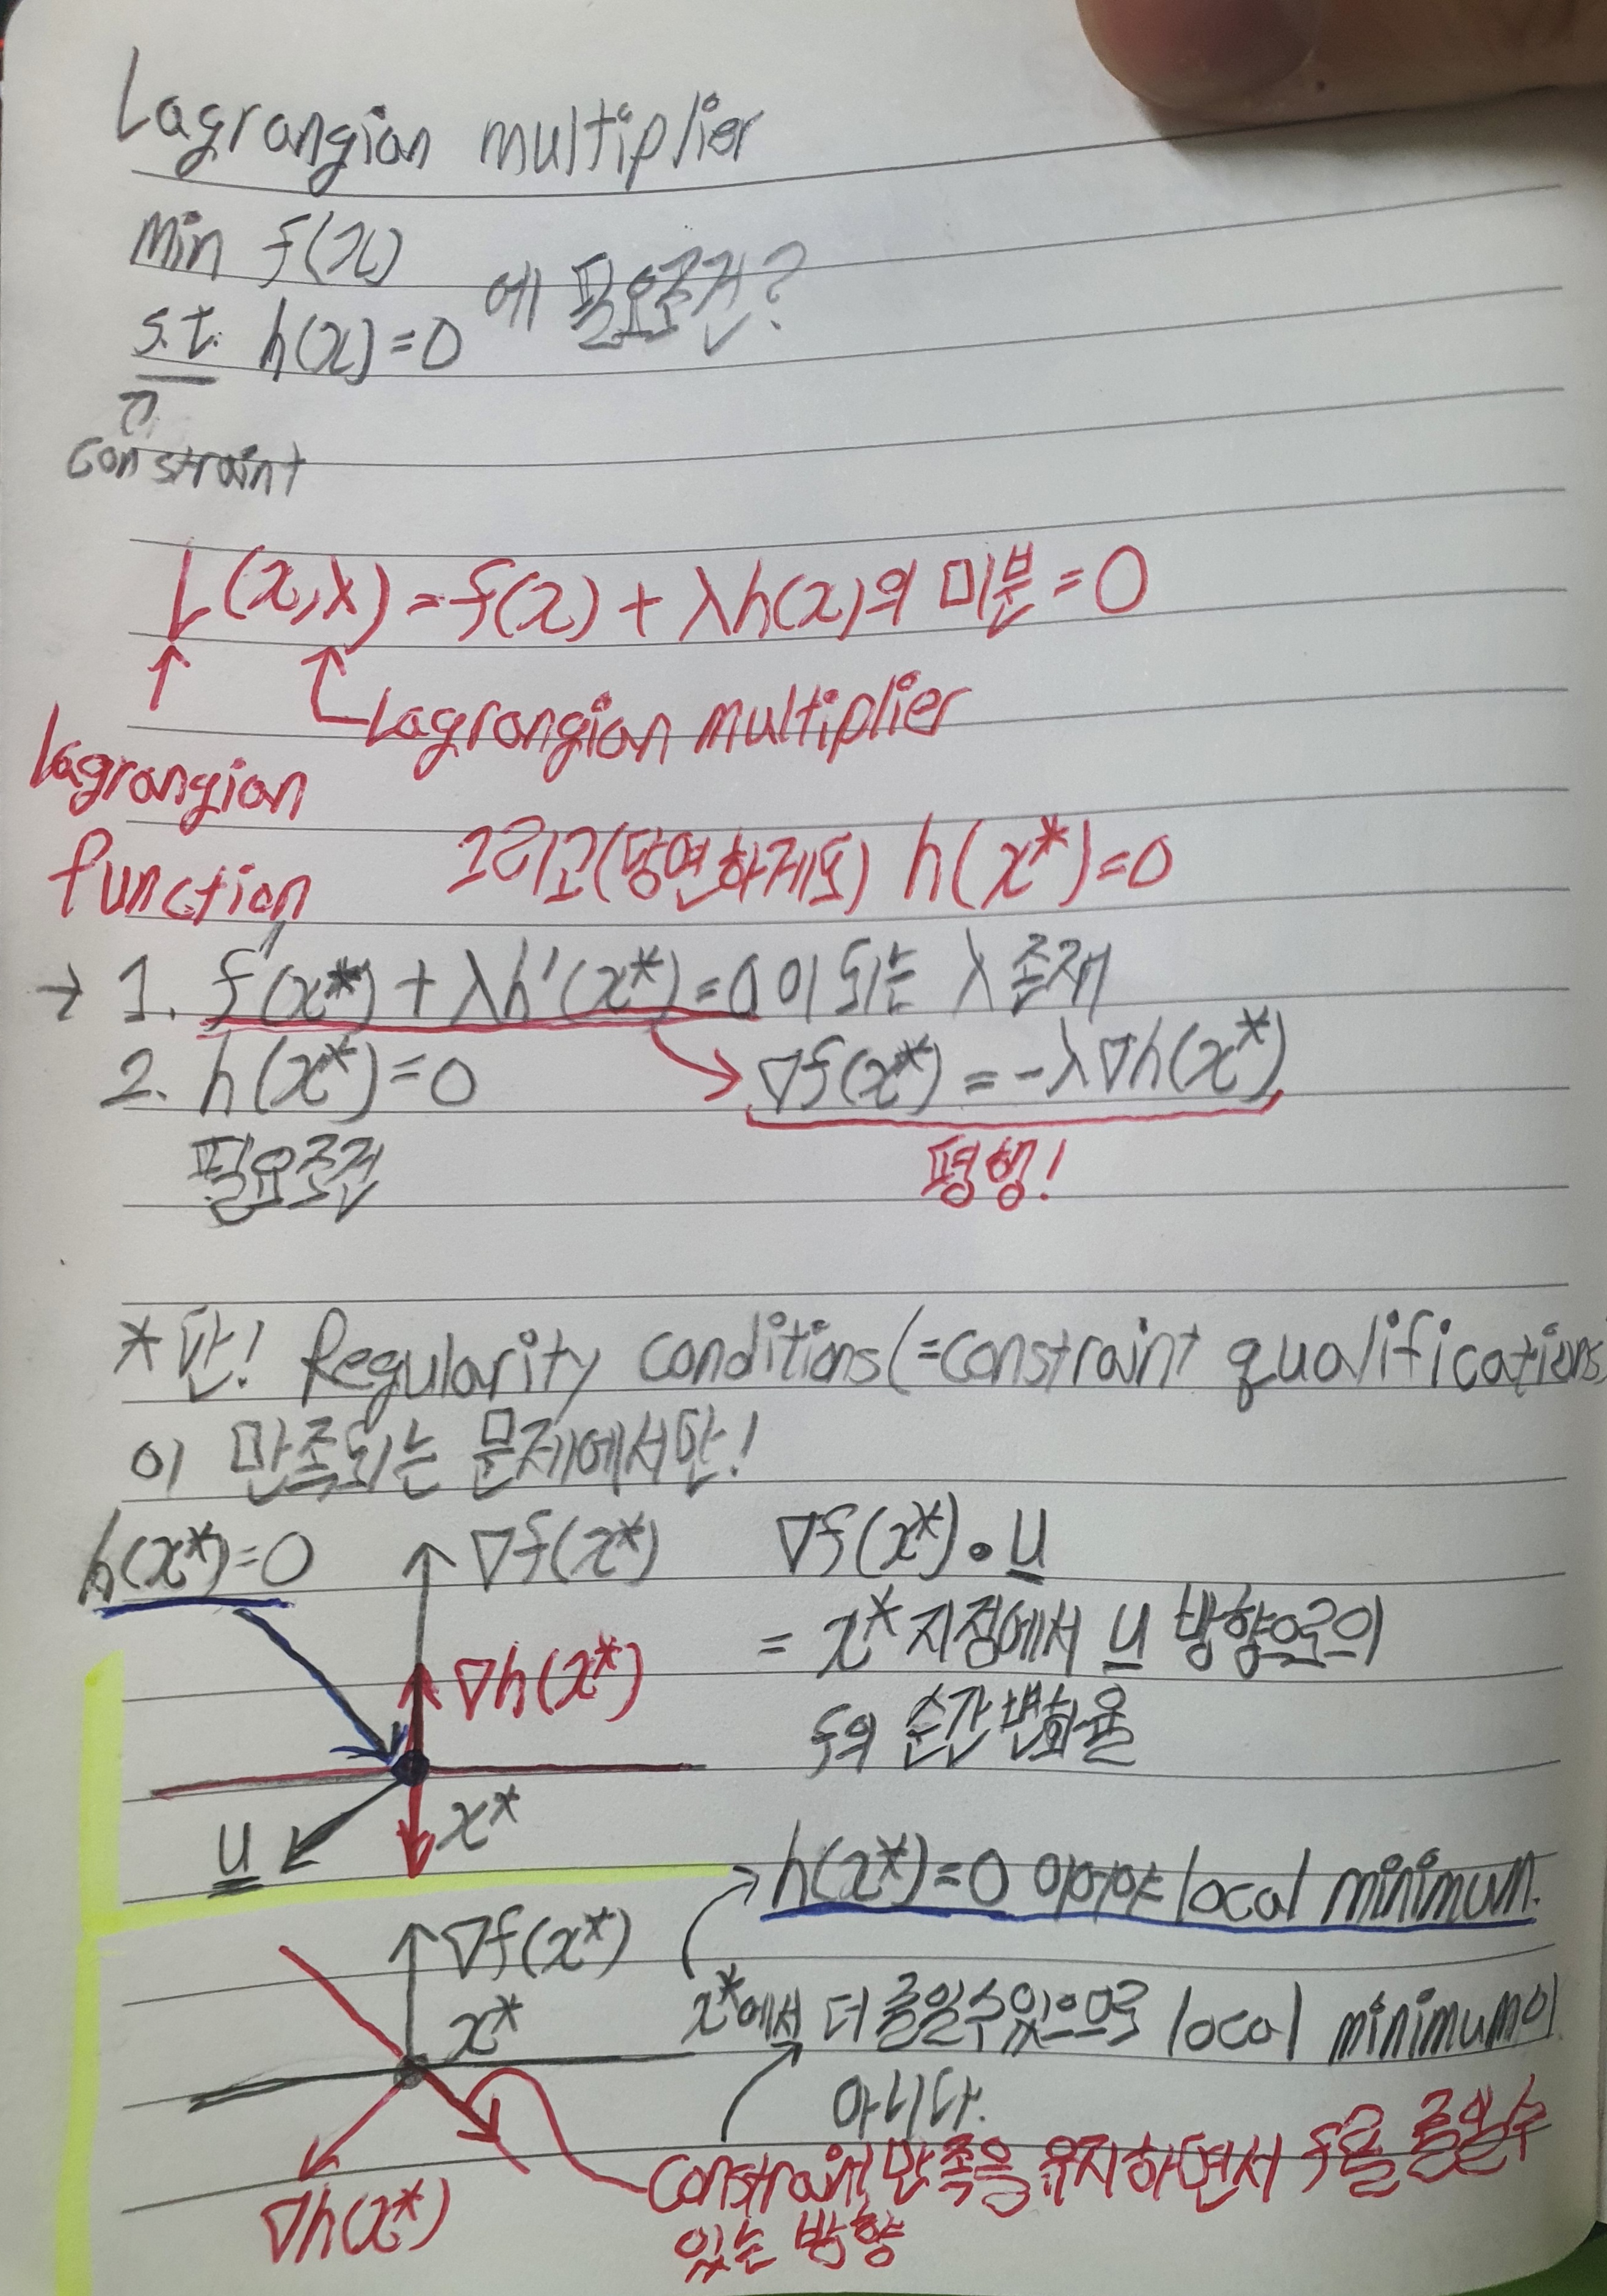 Lagrangian multiplier
min f(x)
s.t. h(x)=0 에 필요조건?
constraint
L(x,λ)=f(x)+λh(x)의 미분=0
Lagrangian multiplier
lagrangian
function
그리고(당연하게도) h(x*)=0
→ 1. f'(x*)+λh'(x*)=0이 되는 λ 존재
2. h(x*)=0
∇f(x*)=-λ∇h(x*)
필요조건
평행!
*단! Regularity conditions(=constraint qualifications)
이 만족되는 문제에서만!
h(x*)=0
∇f(x*)
∇h(x*)
x*
u
∇f(x*)•u
= x* 지점에서 u 방향으로의
f의 순간변화율
h(x*)=0 이어야 local minimum.
∇f(x*)
x*
∇h(x*)
x*에서 더 줄일수있으므로 local minimum이
아니다.
constraint 만족을 유지하면서 f를 줄일수
있는 방향